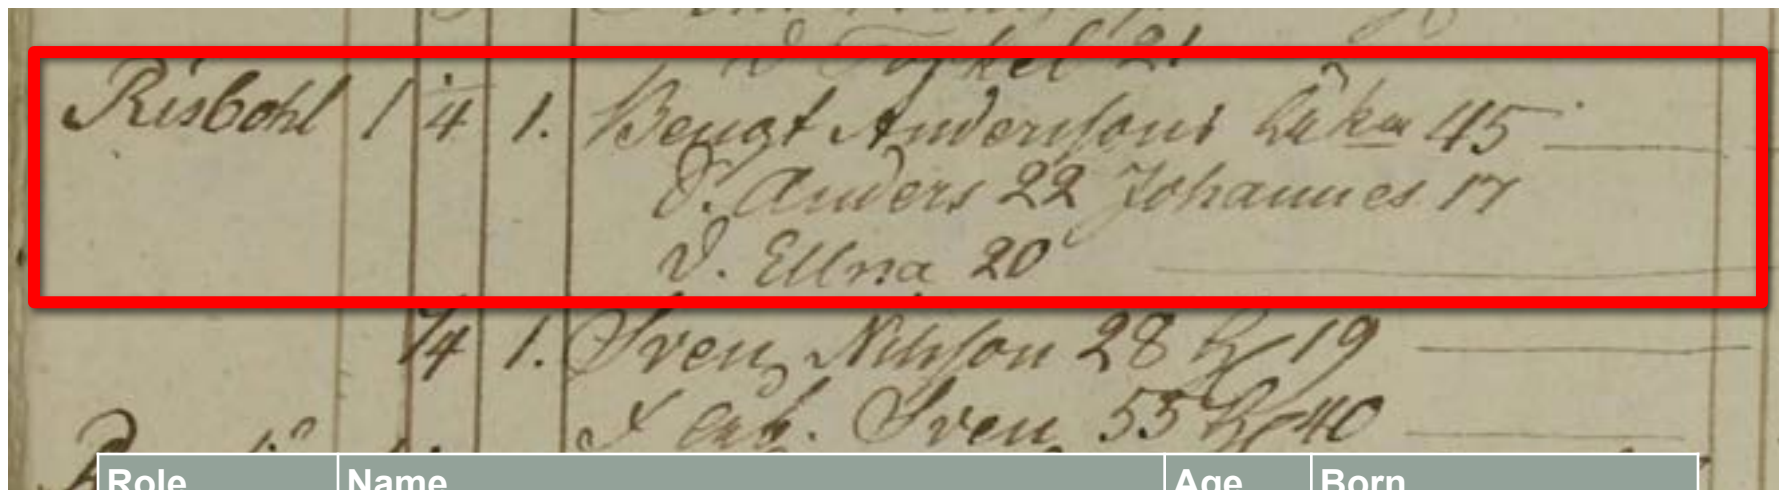 d Torkel 21
Risbohl 1 4 1. Bengt Anderssons Enka 45
S. Anders 22 Johannes 17
d. Ellna 20
1/4 1. Sven Nilsson 28 h 19
Sven 55 h 40
Role Name Age Born